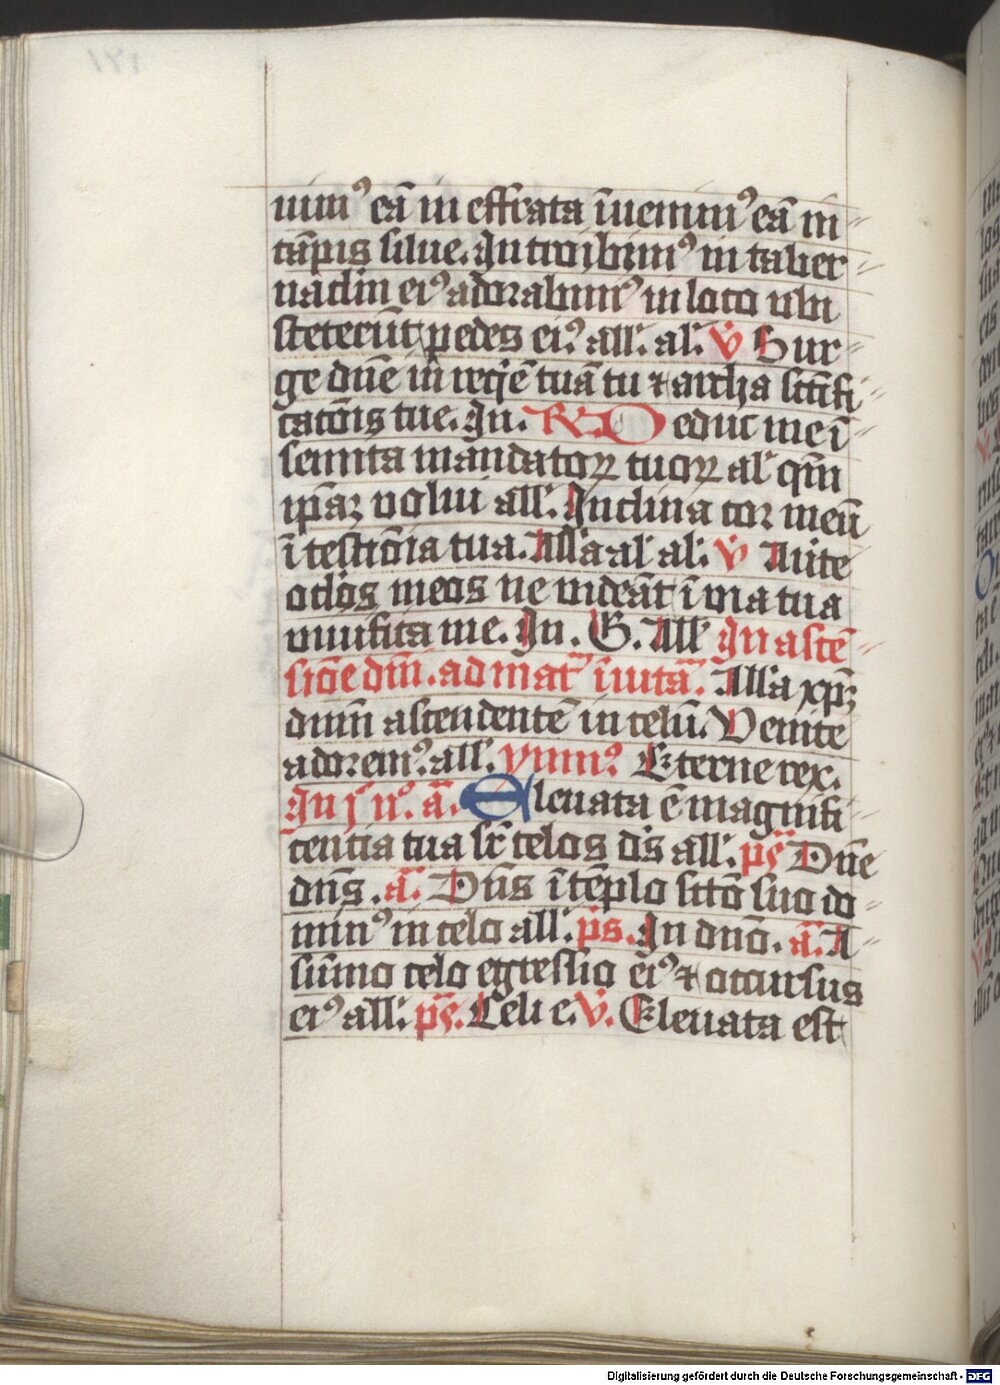 uim⁹ eā in effrata īuenim⁹ eā in
cāpis silue. Introibim⁹ in taber
naclm ei⁹ adorabim⁹ in loco ubi
steterūt pedes ei⁹ all'. al'. v̄ Sur
ge dn̄e in reqiē tuā tu ⁊ archa sctīfi
catōnis tue. In. R. Deduc me ī
semita mandatoꝝ tuoꝝ al' qm̄
ipāꝫ uolui all'. Inclina cor meū
ī testiōia tua. All'a al' al'. v̄ Auite
oclōs meos ne uideāt ī uia tua
uiuifica me. In. G. All' In ascē
siōe dm̄. ad mat̄ īuitā. All'a xp̄ꝫ
dnm̄ ascendentē in celū. Venite
adorem⁹. all'. ymn⁹. Eterne rex.
In j n⁰. ā. Eleuata ē magnifi
centia tua sr̄ celos ds̄ all'. ps̄ Dn̄e
dns̄. ā. Dn̄s ī tēplo sctō suo do
min⁹ in celo all'. p̄s. In dnō. ā. A
sūmo celo egressio ei⁹ ⁊ occursus
ei⁹ all'. ps̄. Celi e. v̄. Eleuata est
Digitalisierung gefördert durch die Deutsche Forschungsgemeinschaft - DFG